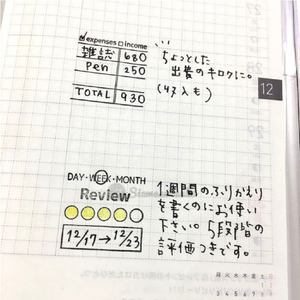 expenses income
雑誌 680
pen 250
TOTAL 930
ちょっとした
出費のキロクに。
(収入も)
12
DAY・WEEK・MONTH
Review
12/17 → 12/23
1週間のふりかえり
を書くのにお使い
下さい。5段階の
評価つきです。
月 火 水 木 金 土 日